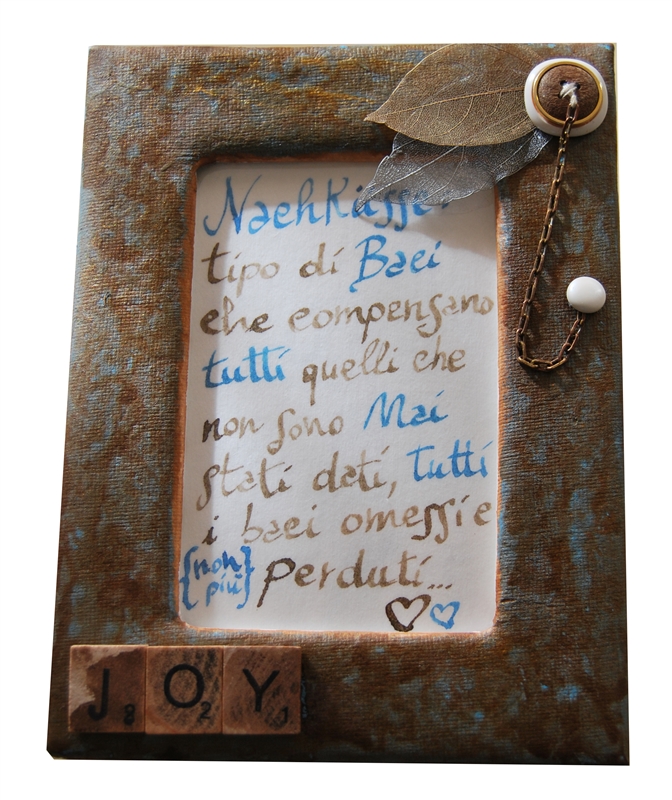 Nachküsse:
tipo di Baci
che compensano
tutti quelli che
non sono Mai
stati dati, tutti
i baci omessi e
{non più} perduti...
JOY
8 2 1